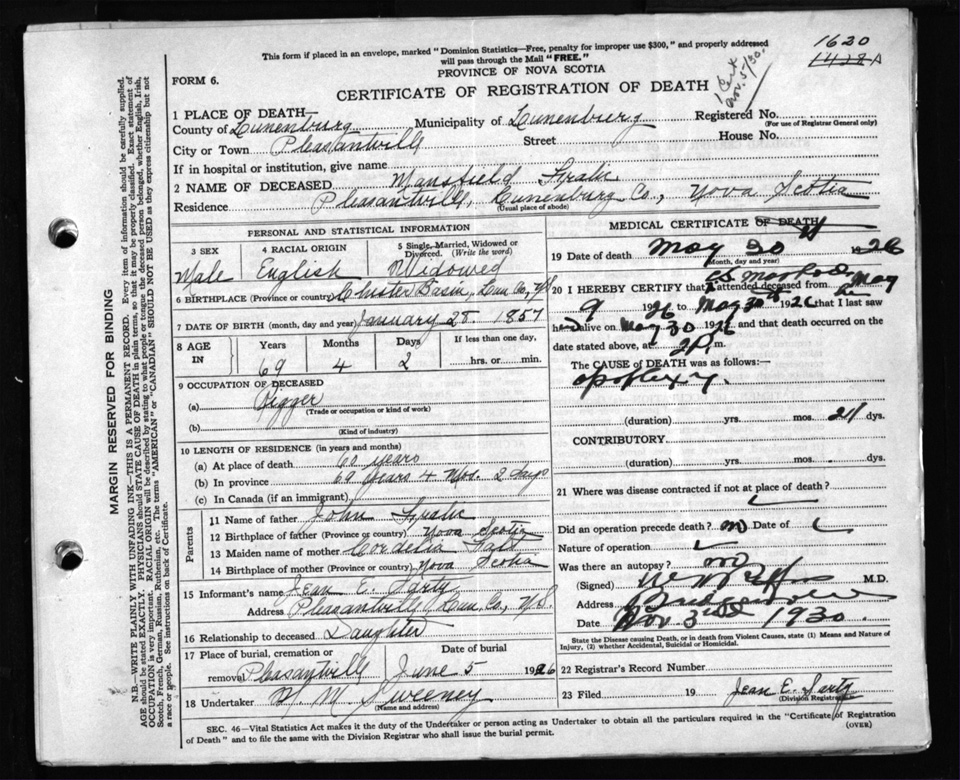 This form if placed in an envelope, marked "Dominion Statistics—Free, penalty for improper use $300," and properly addressed
will pass through the Mail "FREE."
1620
1428 A
1 Cert
Nov. 5/30.
FORM 6.
PROVINCE OF NOVA SCOTIA
CERTIFICATE OF REGISTRATION OF DEATH
1 PLACE OF DEATH—
County of Lunenburg Municipality of Lunenburg Registered No.
(For use of Registrar General only)
City or Town Pleasantville Street House No.
If in hospital or institution, give name
2 NAME OF DECEASED Mansfield
Residence Pleasantville, Lunenburg Co., Nova Scotia
(Usual place of abode)
PERSONAL AND STATISTICAL INFORMATION
3 SEX 4 RACIAL ORIGIN 5 Single, Married, Widowed or Divorced. (Write the word)
Male English Widowed
6 BIRTHPLACE (Province or country) Chester Basin, Lun Co., N.S.
7 DATE OF BIRTH (month, day and year) January 28. 1857
8 AGE IN Years Months Days If less than one day,
69 4 2 hrs. or min.
9 OCCUPATION OF DECEASED
(a) Rigger
(Trade or occupation or kind of work)
(b)
(Kind of industry)
10 LENGTH OF RESIDENCE (in years and months)
(a) At place of death 60 years
(b) In province 69 years 4 Mos. 2 days
(c) In Canada (if an immigrant)
Parents
11 Name of father John
12 Birthplace of father (Province or country) Nova Scotia
13 Maiden name of mother Cordelia
14 Birthplace of mother (Province or country) Nova Scotia
15 Informant's name Jean E. Sarty
Address Pleasantville, Lun. Co., N.S.
16 Relationship to deceased Daughter
17 Place of burial, cremation or removal Date of burial
Pleasantville June 5 1926
18 Undertaker H. M. Sweeney
(Name and address)
MEDICAL CERTIFICATE OF DEATH
19 Date of death May 30 1926
(Month, day and year)
20 I HEREBY CERTIFY that I attended deceased from May
9 1926 to May 30th 1926 that I last saw
h alive on May 30 1926 and that death occurred on the
date stated above, at 2 P. m.
The CAUSE OF DEATH was as follows:—
apoplexy.
(duration) yrs. mos. 21 dys.
CONTRIBUTORY
(duration) yrs. mos. dys.
21 Where was disease contracted if not at place of death?
Did an operation precede death? no Date of
Nature of operation
Was there an autopsy? no
(Signed) M.D.
Address Bridgewater
Date Nov 3rd 1930
State the Disease causing Death, or in death from Violent Causes, state (1) Means and Nature of
Injury, (2) whether Accidental, Suicidal or Homicidal.
22 Registrar's Record Number
23 Filed 19 Jean E. Sarty
(Division Registrar)
SEC. 46—Vital Statistics Act makes it the duty of the Undertaker or person acting as Undertaker to obtain all the particulars required in the "Certificate of Registration
of Death" and to file the same with the Division Registrar who shall issue the burial permit. (OVER)
MARGIN RESERVED FOR BINDING
N.B.—WRITE PLAINLY WITH UNFADING INK—THIS IS A PERMANENT RECORD. Every item of information should be carefully supplied.
AGE should be stated EXACTLY. PHYSICIANS should STATE CAUSE OF DEATH in plain terms, so that it may be properly classified. Exact statement of
OCCUPATION is very important. RACIAL ORIGIN will be described by stating to what people or tongue the deceased person belonged, whether English, Irish,
Scotch, French, German, Russian, Ruthenian, etc. The terms "AMERICAN" or "CANADIAN" SHOULD NOT BE USED as they express citizenship but not
a race or people. See instructions on back of Certificate.